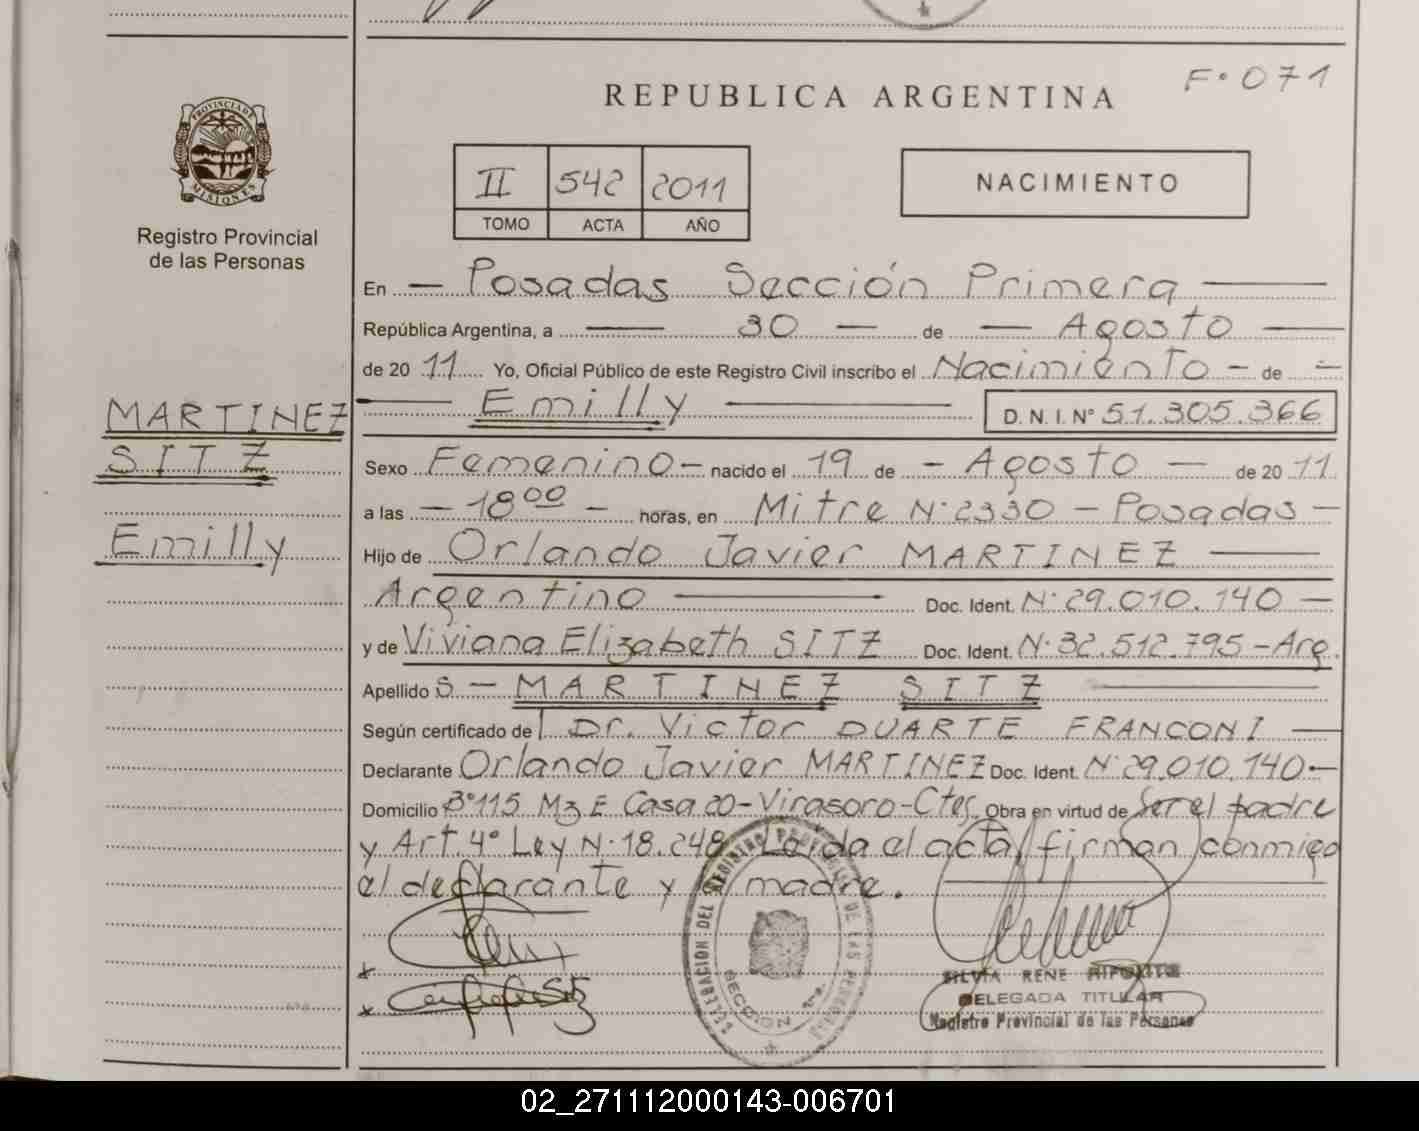 F. 071
REPUBLICA ARGENTINA
PROVINCIA DE
MISIONES
Registro Provincial
de las Personas
II 542 2011
TOMO ACTA AÑO
NACIMIENTO
En — Posadas Sección Primera —
República Argentina, a — 30 — de — Agosto —
de 20 11 Yo, Oficial Público de este Registro Civil inscribo el Nacimiento — de —
— Emilly — D.N.I. N° 51.305.366
MARTINEZ
SITZ
Emilly
Sexo Femenino — nacido el 19 de — Agosto — de 20 11
a las — 18 00 — horas, en Mitre N° 2330 — Posadas —
Hijo de Orlando Javier MARTINEZ —
Argentino — Doc. Ident. N° 29.010.140 —
y de Viviana Elizabeth SITZ Doc. Ident. N° 32.512.795 — Arg.
Apellido s — MARTINEZ SITZ —
Según certificado del Dr. Victor DUARTE FRANCONI —
Declarante Orlando Javier MARTINEZ Doc. Ident. N° 29.010.140 —
Domicilio B° 115 Mz E Casa 20 — Virasoro — Ctes. Obra en virtud de Ser el padre
y Art. 4° Ley N° 18.248. Leída el acta, firman conmigo
el declarante y la madre.
DELEGACION DEL REGISTRO PROVINCIAL DE LAS PERSONAS
SECCION 1ra.
SILVIA RENE
DELEGADA TITULAR
Registro Provincial de las Personas
02_271112000143-006701